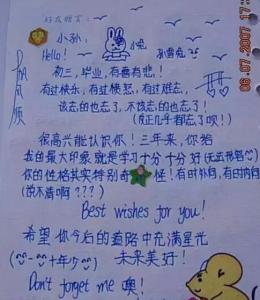 好友赠言:
小孙:
Hello!
小兔
孙雪兔
一帆风顺
初三,毕业,有喜有悲!
有过快乐,有过愤怒,有过难忘,
该忘的也忘了,不该忘的也忘了!
很高兴能认识你!三年来,你给
我的最大印象就是学习十分十分好(无法形容)
你的性格其实特别奇怪!有时外向,有时内向
(说不清啊???)
Best wishes for you!
希望你今后的道路中充满星光
未来美好!
Don't forget me 噢!
06.07.2007 17: